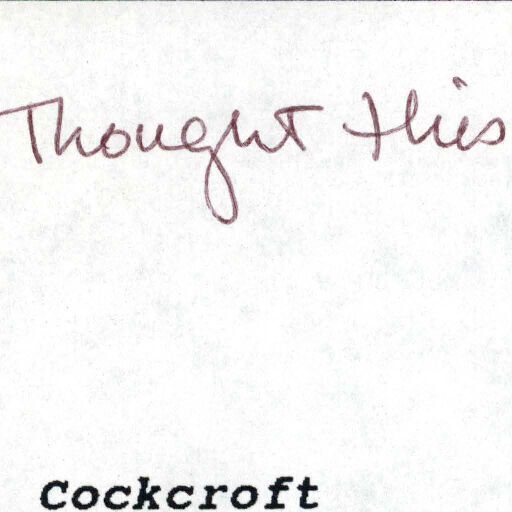 Thought this
Cockcroft